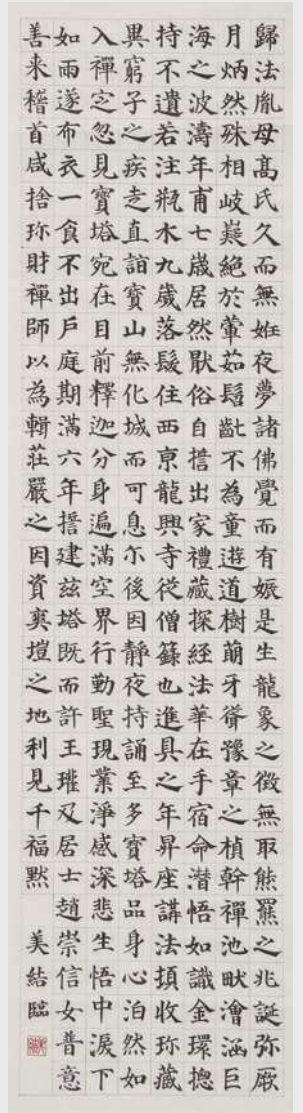 歸法胤母髙氏久而無姙夜夢諸佛覺而有娠是生龍象之徵無取熊羆之兆誕弥厥
月炳然殊相岐嶷絕於葷茹髫齔不為童遊道樹萌牙聳豫章之楨幹禪池畎澮涵巨
海之波濤年甫七歲居然猒俗自誓出家禮藏探經法華在手宿命潜悟如識金環揔
持不遺若注瓶水九歲落髮住西京龍興寺從僧籙也進具之年昇座講法頓收珎藏
異窮子之疾走直詣寶山無化城而可息尓後因靜夜持誦至多寶塔品身心泊然如
入禪定忽見寶塔宛在目前釋迦分身遍滿空界行勤聖現業淨感深悲生悟中淚下
如雨遂布衣一食不出戶庭期滿六年誓建茲塔既而許王瓘及居士趙崇信女普意
善来稽首咸捨珎財禪師以為輯莊嚴之因資爽塏之地利見千福默 美結臨